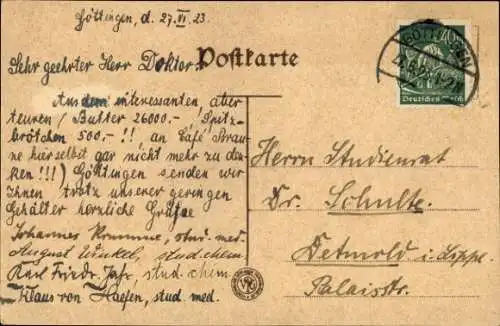 Göttingen, d. 27.VI.23.
Postkarte
Sehr geehrter Herr Doktor!
Aus dem interessanten, aber
teuren (Butter 26000.- Spitz-
brötchen 500.- !! an Café
hierselbst gar nicht mehr zu den-
ken!!!) Göttingen senden wir
Ihnen trotz unserer geringen
Gehälter herzliche Grüße
Johannes, stud. med.
August Winkel, stud. chem.
Karl Friedr. Jahr, stud. chem.
Klaus von Haefen, stud. med.
GÖTTINGEN
Deutsches Reich
Herrn Studienrat
Dr. Schulte.
Detmold i. Lippe.
Palaisstr.